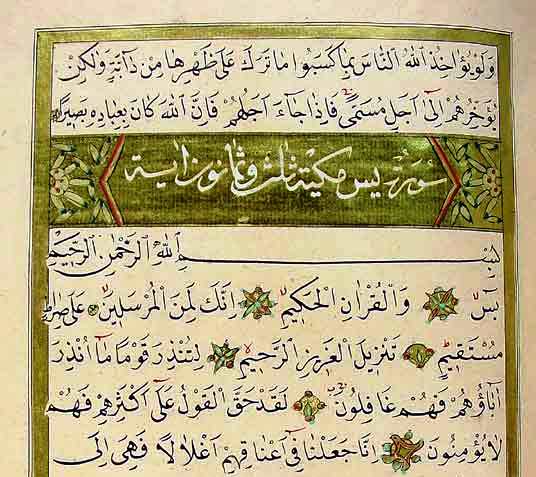 وَلَوْ يُؤَاخِذُ اللّٰهُ النَّاسَ بِمَا كَسَبُوا مَا تَرَكَ عَلٰى ظَهْرِهَا مِنْ دَابَّةٍ وَلٰكِنْ
يُؤَخِّرُهُمْ اِلٰى اَجَلٍ مُسَمًّى فَاِذَا جَاءَ اَجَلُهُمْ فَاِنَّ اللّٰهَ كَانَ بِعِبَادِهِ بَصِيرًا
سورة يس مكية ثلث وثمانون اية
بِسْمِ اللّٰهِ الرَّحْمٰنِ الرَّحِيمِ
يٰسٓ وَالْقُرْاٰنِ الْحَكِيمِ اِنَّكَ لَمِنَ الْمُرْسَلِينَ عَلٰى صِرَاطٍ
مُسْتَقِيمٍ تَنْزِيلَ الْعَزِيزِ الرَّحِيمِ لِتُنْذِرَ قَوْمًا مَا اُنْذِرَ
اٰبَاؤُهُمْ فَهُمْ غَافِلُونَ لَقَدْ حَقَّ الْقَوْلُ عَلٰى اَكْثَرِهِمْ فَهُمْ
لَا يُؤْمِنُونَ اِنَّا جَعَلْنَا فِي اَعْنَاقِهِمْ اَغْلَالًا فَهِيَ اِلَى